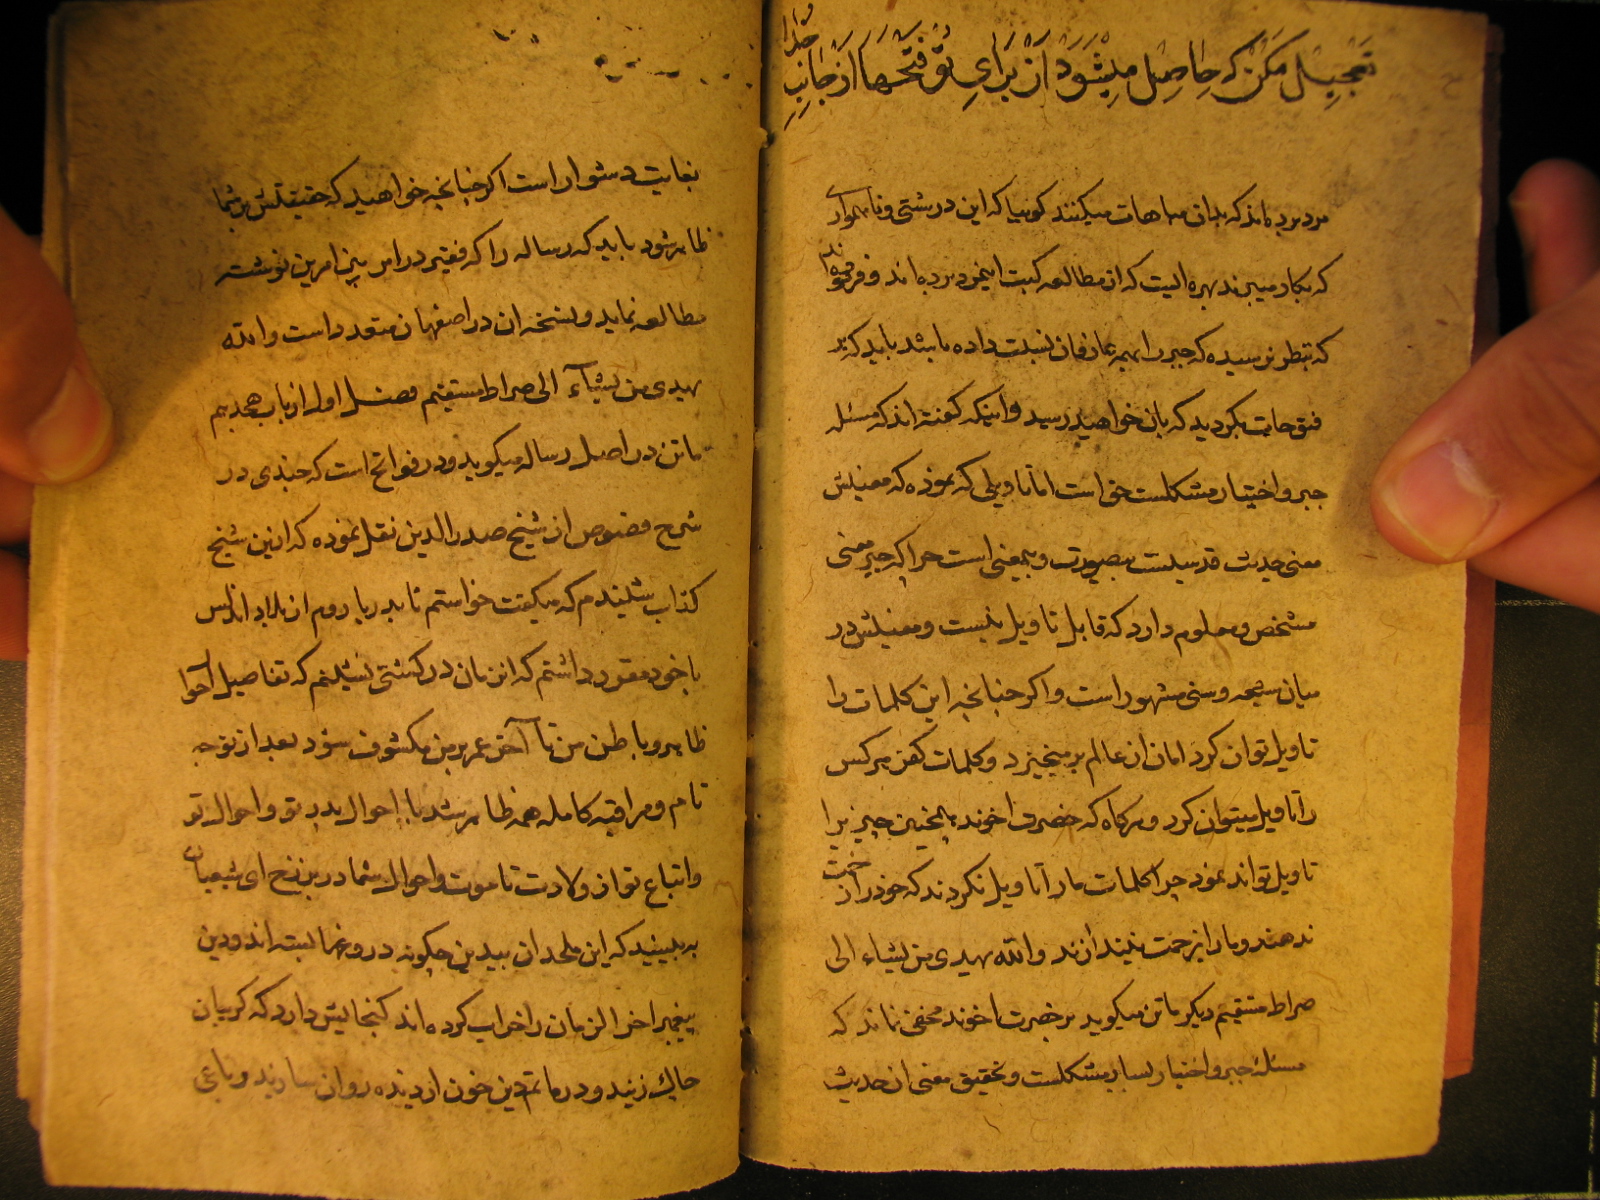 تعجیل مکن که حاصل میشود از برای تو فتحها از جانب
خدا
مرد برده اند که بدان مباهات میکنند کوییا که این درشتی و ناهمواری
که بکار میبرند بهره الیت که از مطالعه کتب اینمرد برده اند و فرموده اند
که بنظر نرسیده که جبر را بهمه عارفان نسبت داده باشد باید که بر
فتوحات بکردید که بان خواهید رسید و اینکه کفته اند که مسئله
جبر و اختیار مشکلست حق است اما تاویلی که نموده که معنیش
معنی حدیث قدسیست بیصورت و بیمعنی است چرا که جبر معنی
مشخص و معلوم دارد که قابل تاویل نیست و معنیش در
میان شیعه و سنی مشهور است و اکر چنانچه این کلمات را
تاویل توان کرد امان از عالم بر میخیزد و کلمات کفر هر کس
را تاویل میتوان کرد و هر کاه که حضرت اخوند اینچنین چیز برا
تاویل تواند نمود چرا کلمات ما را تاویل نکردند که خود را زحمت
ندهند و ما را بزحمت نیندازند والله یهدی من یشاء الی
صراط مستقیم دیکر ماتن میکوید بر حضرت اخوند مخفی نماند که
مسئلهٔ جبر و اختیار بسیار مشکلست و تحقیق معنی ان حدیث
بغایت دشوار است اکر چنانچه خواهید که حقیقتش بر شما
ظاهر شود باید که رساله را که فقیر در امر بین امرین نوشته
مطالعه نماید و نسخه ان در اصفهان متعدد است والله
یهدی من یشآء الی صراط مستقیم فصل اول از باب هجدهم
ماتن در اصل رساله میکوید و در فواتح است که جندی در
شرح فصوص از شیخ صدر الدین نقل نموده که ازین شیخ
کذاب شنیدم که میکفت خواستم تا بدریا روم از بلاد اندلس
با خود مقرر داشتم که انزمان در کشتی نشینم که تفاصیل احوال
ظاهر و باطن من تا آخر عمر بر من مکشوف شود بعد از توجه
تام و مراقبه کامله همه ظاهر شد با احوال پدر تو و احوال تو
و اتباع تو از ولادت تا موت و احوال شما در برزخ ای شیعیان
به بینید که این ملحدان بیدین چکونه دروغها بسته اند و دین
پیغمبر اخر الزمان را خراب کرده اند کنجایش دارد که کریبان
چاک زنید و در ماتم دین خون از دیده روان سازند و باغی